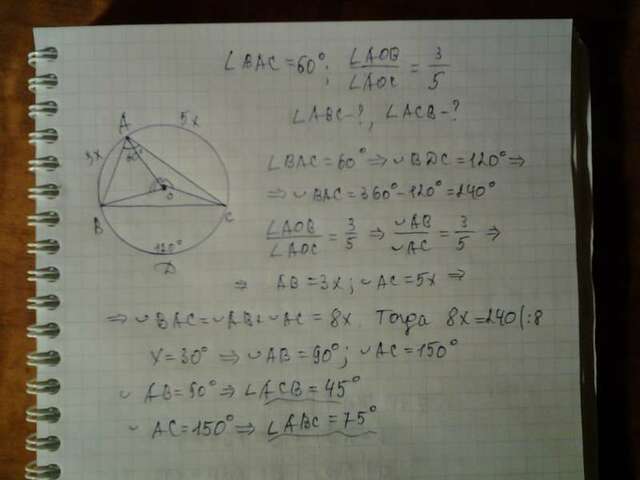 ∠BAC = 60°; ∠AOB/∠AOC = 3/5
∠ABC-?, ∠ACB-?
A 5x
3x 60°
O
B C
120°
D
∠BAC = 60° ⇒ ◡BDC = 120° ⇒
⇒ ◡BAC = 360° - 120° = 240°
∠AOB/∠AOC = 3/5 ⇒ ◡AB/◡AC = 3/5 ⇒
⇒ AB = 3x; ◡AC = 5x ⇒
⇒ ◡BAC = ◡AB + ◡AC = 8x. Тогда 8x = 240 |:8
X = 30° ⇒ ◡AB = 90°; ◡AC = 150°
◡AB = 90° ⇒ ∠ACB = 45°
◡AC = 150° ⇒ ∠ABC = 75°